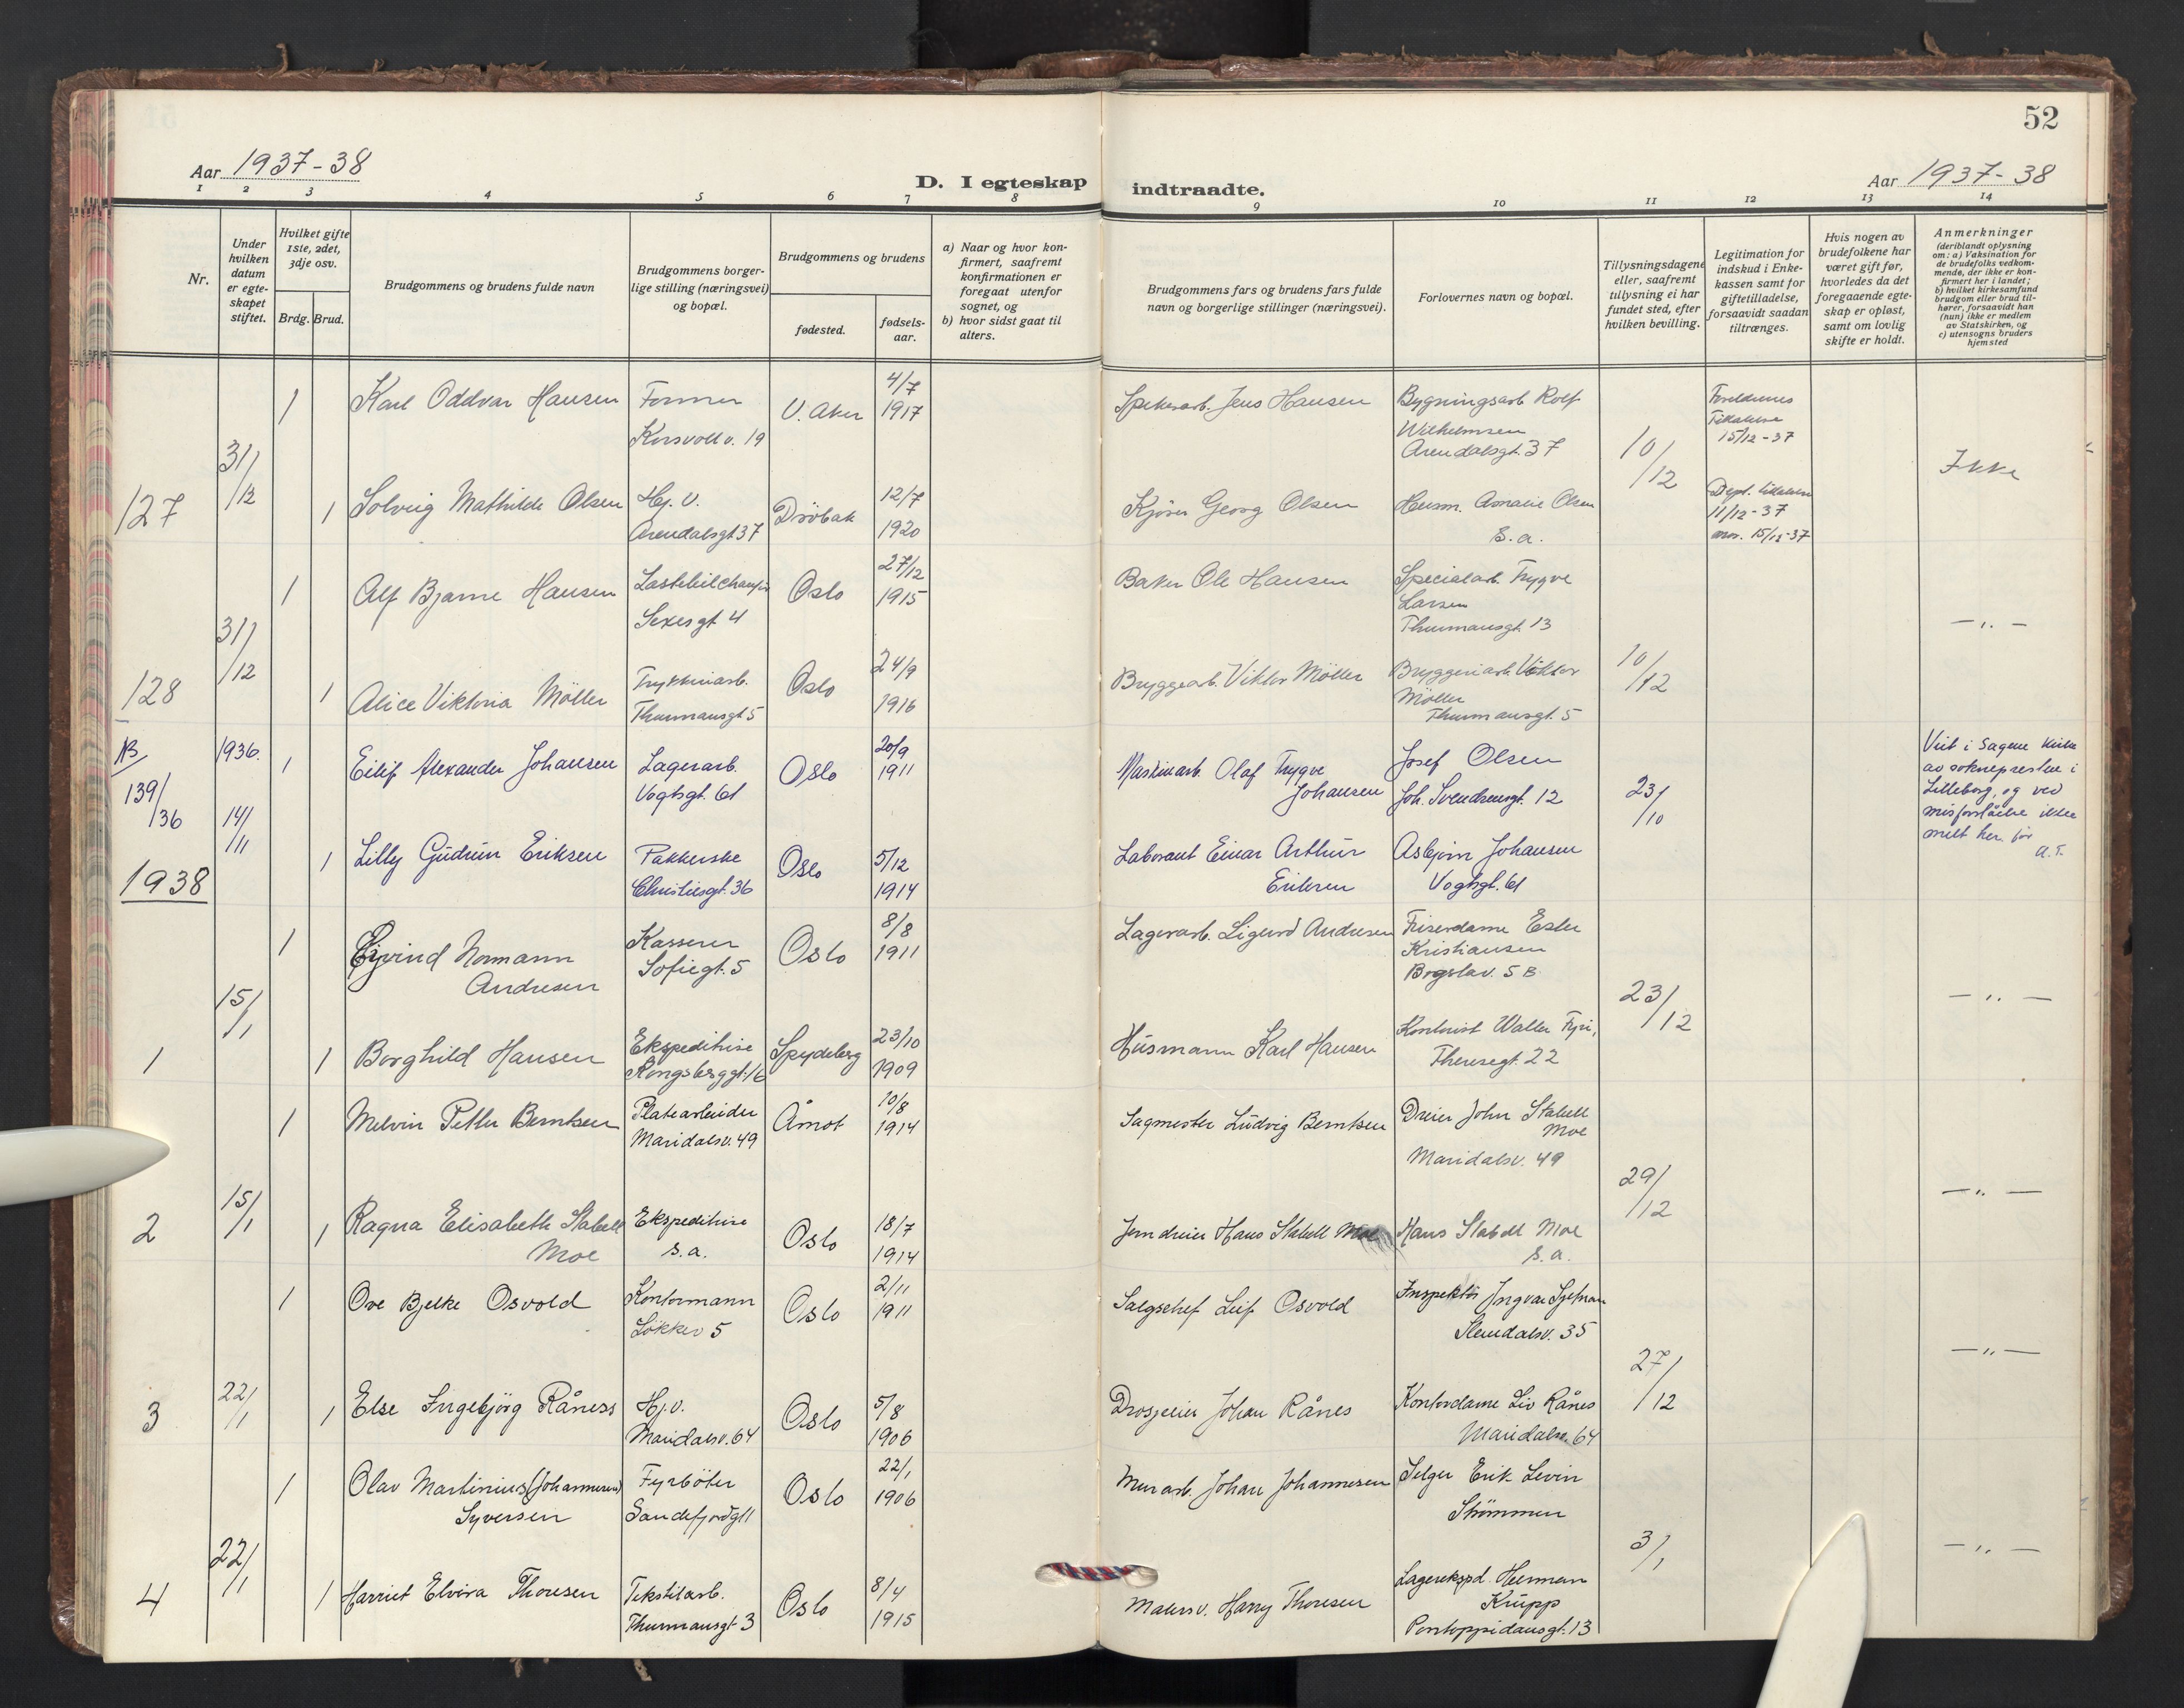 52
Aar 1937-38
D. I egteskap indtraadte.
Aar 1937-38
1 2 3 4 5 6 7 8 9 10 11 12 13 14
Nr.
Under hvilken datum er egteskapet stiftet.
Hvilket gifte 1ste, 2det, 3dje osv.
Brdg. Brud.
Brudgommens og brudens fulde navn
Brudgommens borgerlige stilling (næringsvei) og bopæl.
Brudgommens og brudens
fødested.
fødselsaar.
a) Naar og hvor konfirmert, saafremt konfirmationen er foregaat utenfor sognet, og
b) hvor sidst gaat til alters.
Brudgommens fars og brudens fars fulde navn og borgerlige stillinger (næringsvei).
Forlovernes navn og bopæl.
Tillysningsdagene eller, saafremt tillysning ei har fundet sted, efter hvilken bevilling.
Legitimation for indskud i Enkekassen samt for giftetilladelse, forsaavidt saadan tiltrænges.
Hvis nogen av brudefolkene har været gift før, hvorledes da det foregaaende egteskap er opløst, samt om lovlig skifte er holdt.
Anmerkninger
(deriblandt oplysning om: a) Vaksination for de brudefolks vedkommende, der ikke er konfirmert her i landet; b) hvilket kirkesamfund brudgom eller brud tilhører, forsaavidt han (hun) ikke er medlem av Statskirken, og c) utensogns bruders hjemsted
1 Karl Oddvar Hansen Former V. Aker 4/7 1917 Spikerarb. Jens Hansen Bygningsarb. Rolf
Korsvollv. 19 Wilhelmsen
Arendalsgt. 37
Foreldrenes
Tillatelse
15/12-37
127 31/12 10/12 Ikke
1 Solveig Mathilde Olsen Hj. V. Drøbak 12/7 1920 Kjører Georg Olsen Husm. Amalie Olsen
Arendalsgt 37 S. a.
Dept. tillatelse
11/12-37
15/12-37
1 Alf Bjarne Hansen Lastebilchauffør Oslo 27/12 1915 Baker Ole Hansen Specialarb. Trygve
Sexesgt 4 Larsen
Thurmansgt. 13
128 31/12 10/12 — „ —
1 Alice Viktoria Möller Trykkeriarb. Oslo 24/9 1916 Bryggearb. Viktor Möller Bryggeriarb. Viktor
Thurmansgt. 5 Möller
Thurmansgt. 5
NB 1936. 1 Eilif Alexander Johansen Lagerarb. Oslo 20/9 1911 Maskinarb. Olaf Trygve Johansen Josef Olsen
Vogtsgt. 61 Joh. Svendsensgt. 12
139/36 14/11 23/10
Viet i Sagene kirke
av soknepresten i
Lilleborg, og ved
misforståelse ikke
meldt her før
A.T.
1 Lilly Gudrun Eriksen Pakkerske Oslo 5/12 1914 Laborant Einar Arthur Eriksen Asbjørn Johansen
Christiesgt. 36 Vogtsgt. 61
1938
1 Ejvind Normann Andresen Kasserer Oslo 8/8 1911 Lagerarb. Sigurd Andresen Friserdame Ester
Sofiegt. 5 Kristiansen
Bogstav. 5 B
1 15/1 23/12 — „ —
1 Borghild Hansen Ekspeditrise Spydeberg 23/10 1909 Husmann Karl Hansen Kontorist Walter Fyri,
Kongsberggt. 16 Theresegt. 22
1 Melvin Petter Berntsen Platearbeider Åmot 10/8 1914 Sagmester Ludvig Berntsen Dreier John Stabell Moe
Maridalsv. 49 Maridalsv. 49
2 15/1 29/12 — „ —
1 Ragna Elisabeth Stabell Moe Ekspeditrise Oslo 18/7 1914 Jerndreier Hans Stabell Moe Hans Stabell Moe
s. a. s. a.
1 Ove Bjelke Osvold Kontormann Oslo 2/11 1911 Salgschef Leif Osvold Inspektør Ingvar
Løkkev 5 Stendalsv. 35
3 22/1 27/12 — „ —
1 Else Ingebjörg Råness Hj.v. Oslo 5/8 1906 Drosjeeier Johan Rånes Kontordame Liv Rånes
Maridalsv. 64 Maridalsv. 64
1 Olav Martinius (Johannesen) Syversen Fyrbøter Oslo 22/1 1906 Murarb. Johan Johannesen Selger Erik Levin
Sandefjordgt 1 Strömmen
4 22/1 3/1 — „ —
1 Harriet Elvira Thoresen Tekstilarb. Oslo 8/4 1915 Malersv. Harry Thoresen Lagerekspd. Herman
Thurmansgt 3 Krupp
Pontoppidansgt. 13